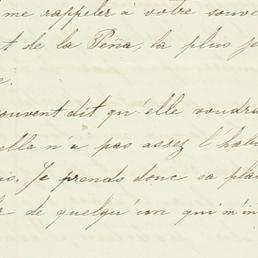 me rappeler à votre souve
t de la Pena, la plus je
e.
souvent dit qu'elle voudra
ella n'a pas assez l'hab
is. Je prends donc sa pla
de quelqu'un qui m'in